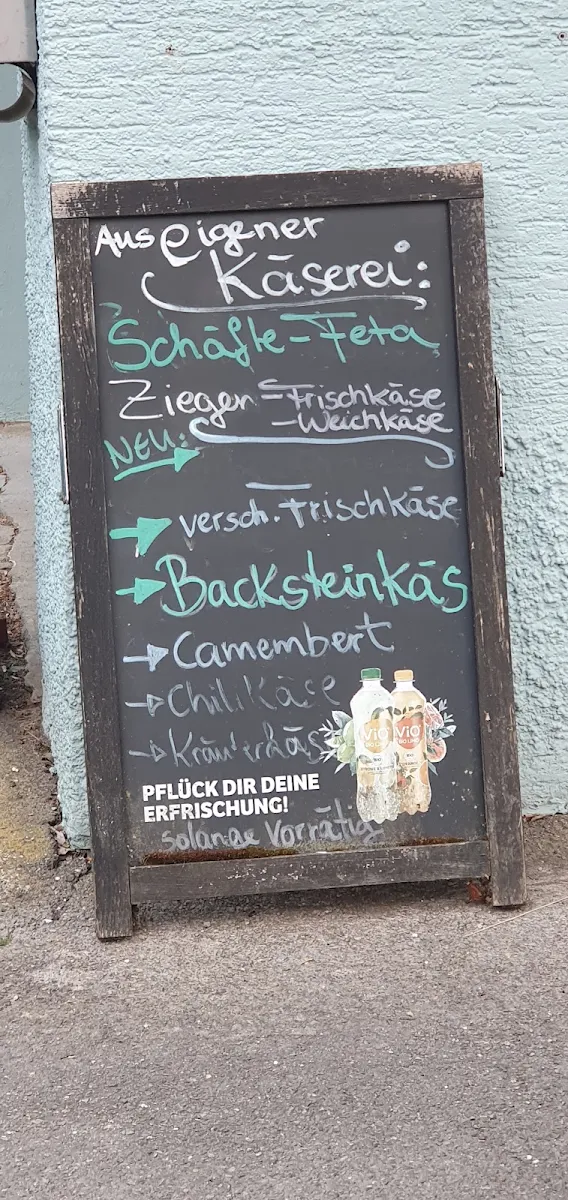 Aus eigener
Käserei:
Schäfle-Feta
Ziegen-Frischkäse
-Weichkäse
NEU:
versch. Frischkäse
Backsteinkäs
Camembert
Chili Käse
Kräuterkäse
ViO
BIO LIMO
ViO
BIO LIMO
PFLÜCK DIR DEINE
ERFRISCHUNG!
solange Vorrätig